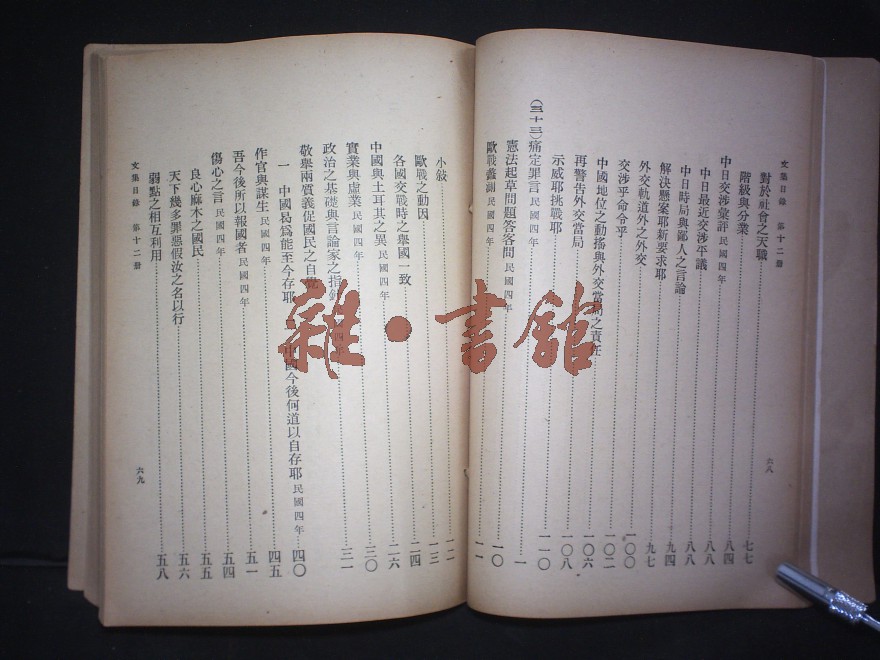 文集目錄　第十二冊　六八
對於社會之天職……七七
階級與分業……八四
中日交涉彙評 民國四年……八八
中日最近交涉平議……八八
中日時局與鄙人之言論……九四
解決懸案耶新要求耶……九七
外交軌道外之外交……一〇〇
交涉乎命令乎……一〇二
中國地位之動搖與外交當局之責任……一〇六
再警告外交當局……一〇八
示威耶挑戰耶……一一〇
（三十三）痛定罪言 民國四年……一
憲法起草問題答客問 民國四年……一〇
歐戰蠡測 民國四年……一一
小敍……一二
歐戰之動因……一三
各國交戰時之舉國一致……二四
中國與土耳其之異 民國四年……二六
實業與虛業 民國四年……三〇
政治之基礎與言論家之指針 四年……三一
敬舉兩質義促國民之自覺
一　中國曷爲能至今存耶　二　中國今後何道以自存耶 民國四年……四〇
作官與謀生 民國四年……四五
吾今後所以報國者 民國四年……五一
傷心之言 民國四年……五四
良心麻木之國民……五五
天下幾多罪惡假汝之名以行……五六
弱點之相互利用……五八
文集目錄　第十二冊　六九
雜·書館